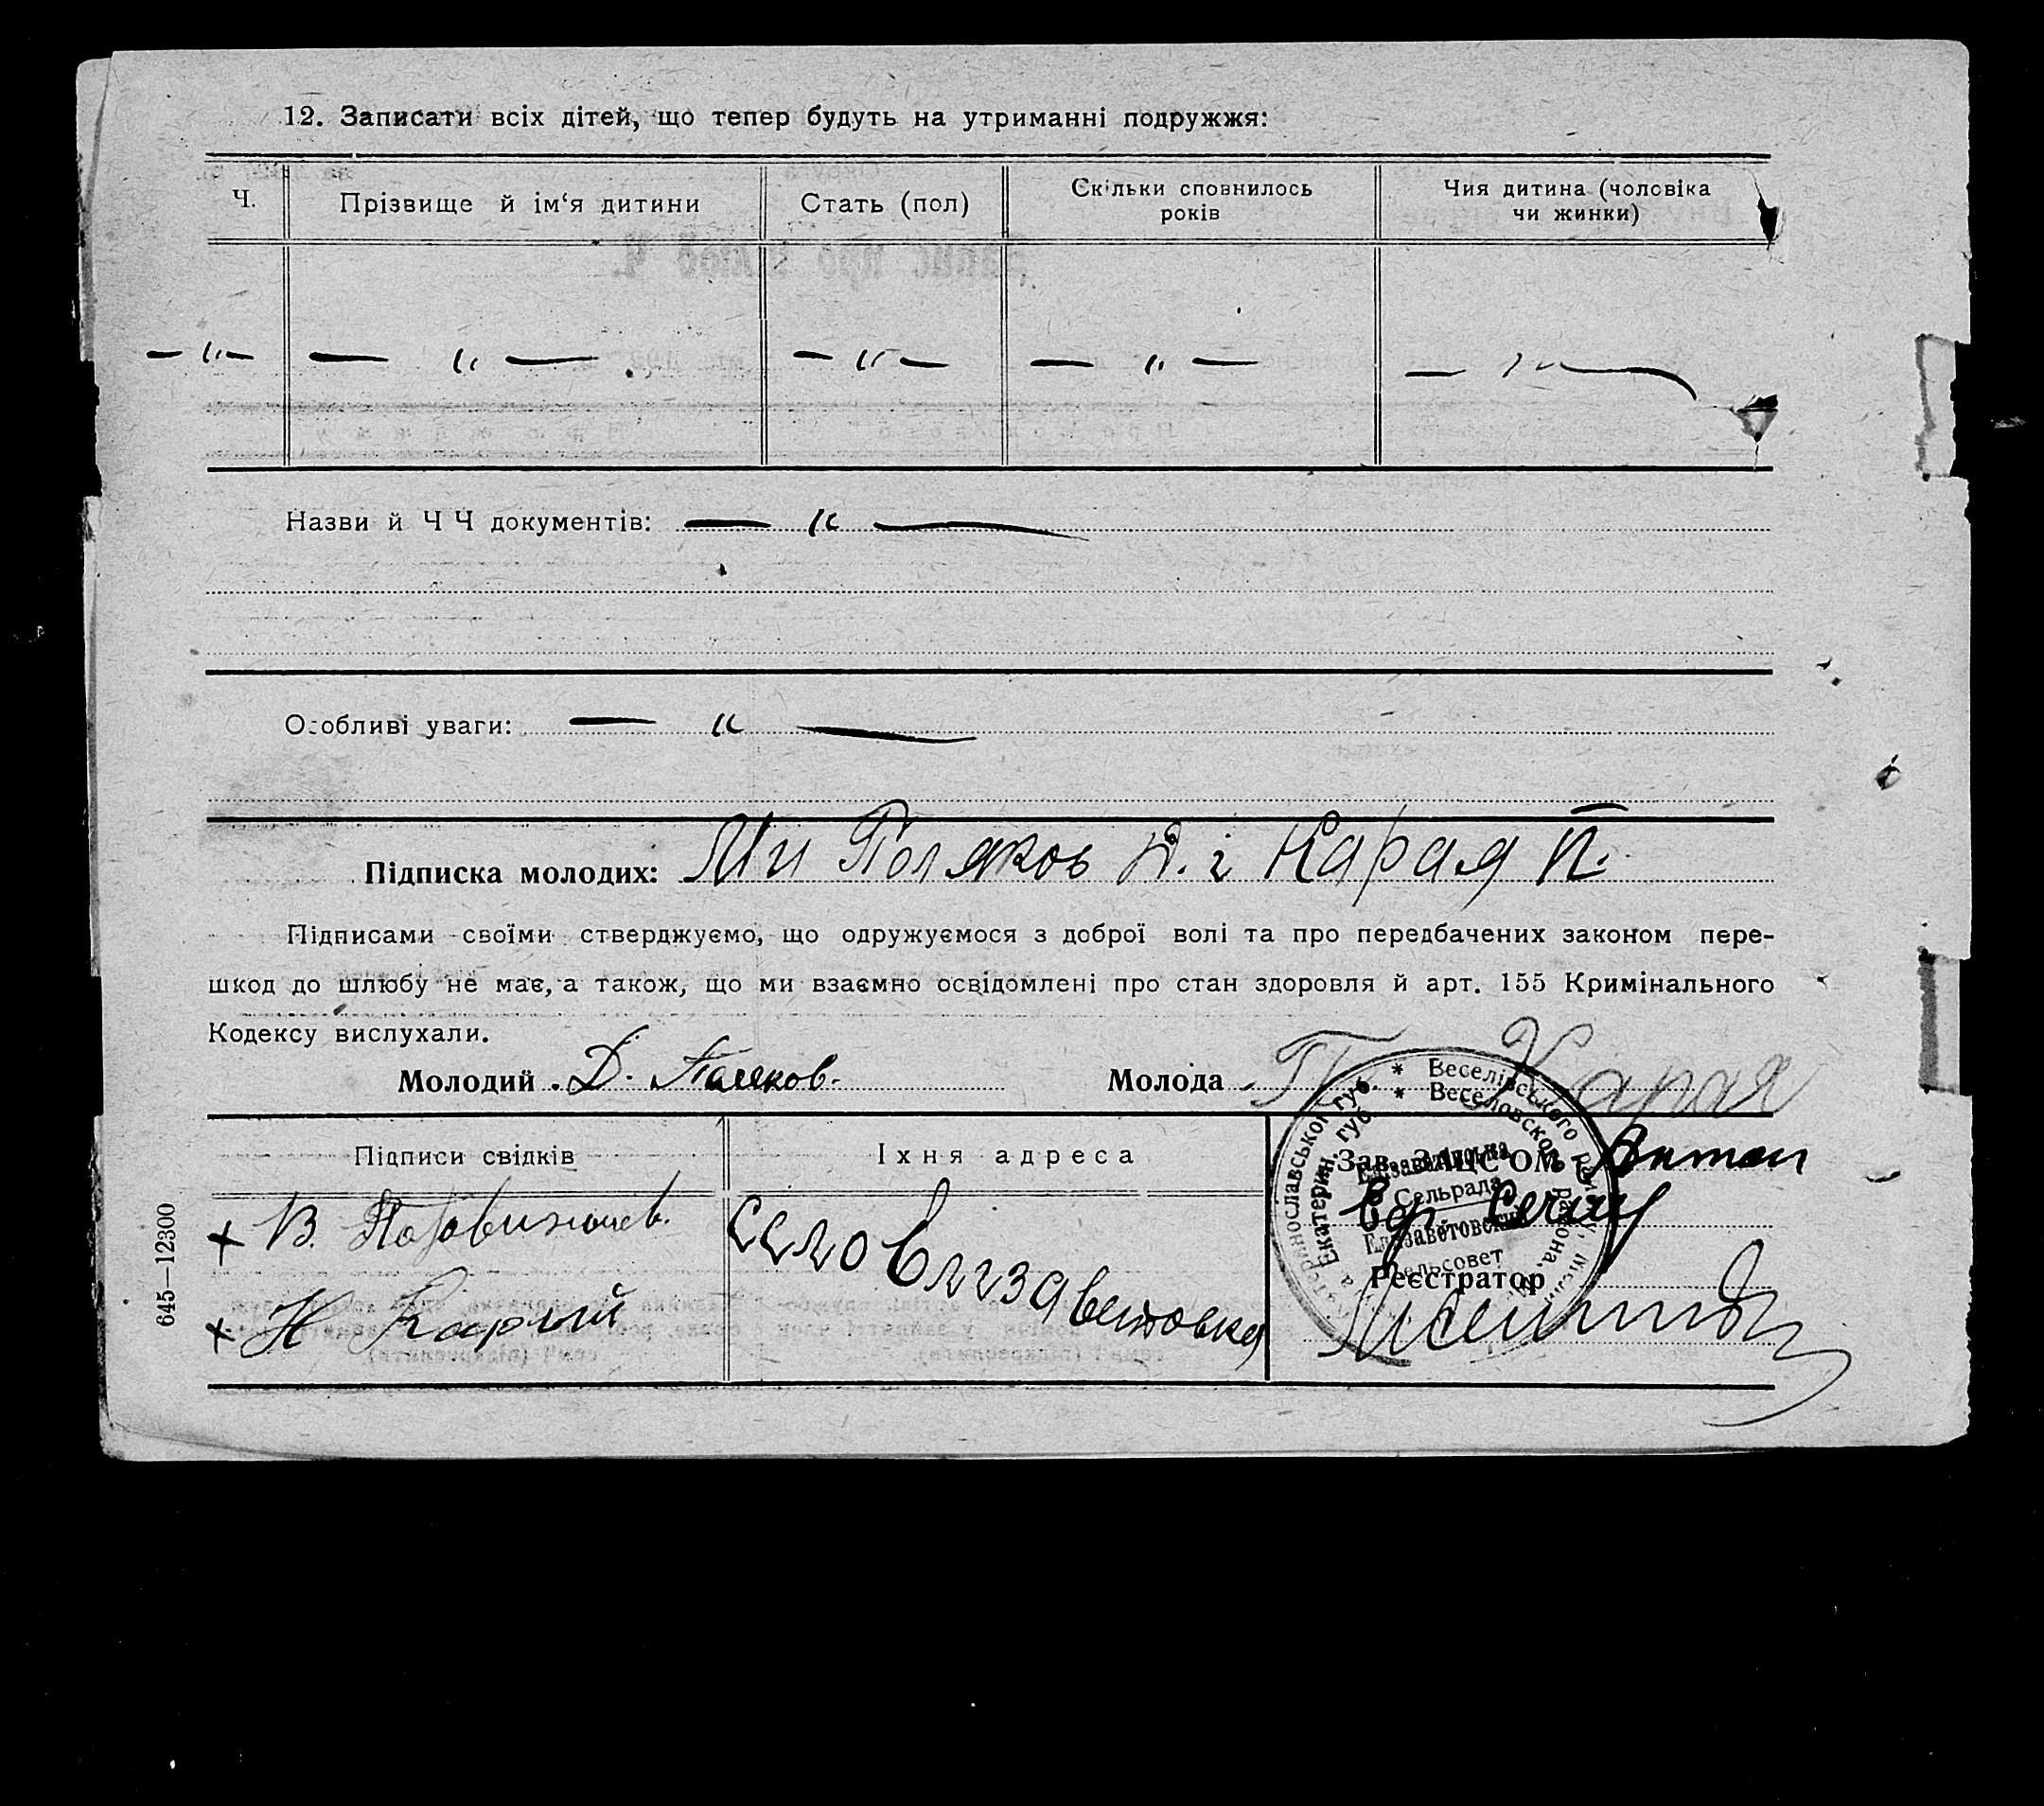 12. Записати всіх дітей, що тепер будуть на утриманні подружжя:
Ч.
Прізвище й ім‘я дитини
Стать (пол)
Скільки сповнилось
років
Чия дитина (чоловіка
чи жинки)
— " —
— " —
— " —
— " —
— " —
Назви й Ч Ч документів: — " —
Особливі уваги: — " —
Підписка молодих: Ми Поляков Д. і Карая П.
Підписами своїми стверджуємо, що одружуємося з доброї волі та про передбачених законом пере-
шкод до шлюбу не має, а також, що ми взаємно освідомлені про стан здоровля й арт. 155 Кримінального
Кодексу вислухали.
Молодий Д. Поляков.
Молода Карая
Підписи свідків
Їхня адреса
Зав. ЗАЦС‘ОМ
+ В.
+ Н Карий
село Елизаветовка
Реєстратор
* Веселівського
* Веселовского района,
Катеринославської губ.
Екатерин. губ.
Сельрада
Елизаветовский
сельсовет
645—12300